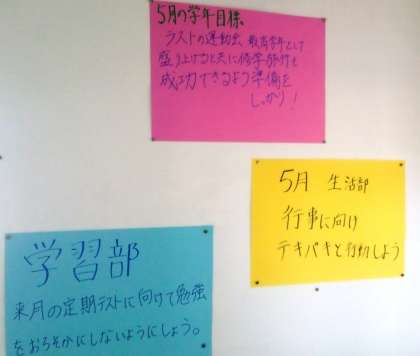 5月の学年目標
ラストの運動会、最高学年として
盛り上げると共に修学旅行も
成功できるよう準備を
しっかり!
5月 生活部
行事に向け
テキパキと行動しよう
学習部
来月の定期テストに向けて勉強
をおろそかにしないようにしよう。